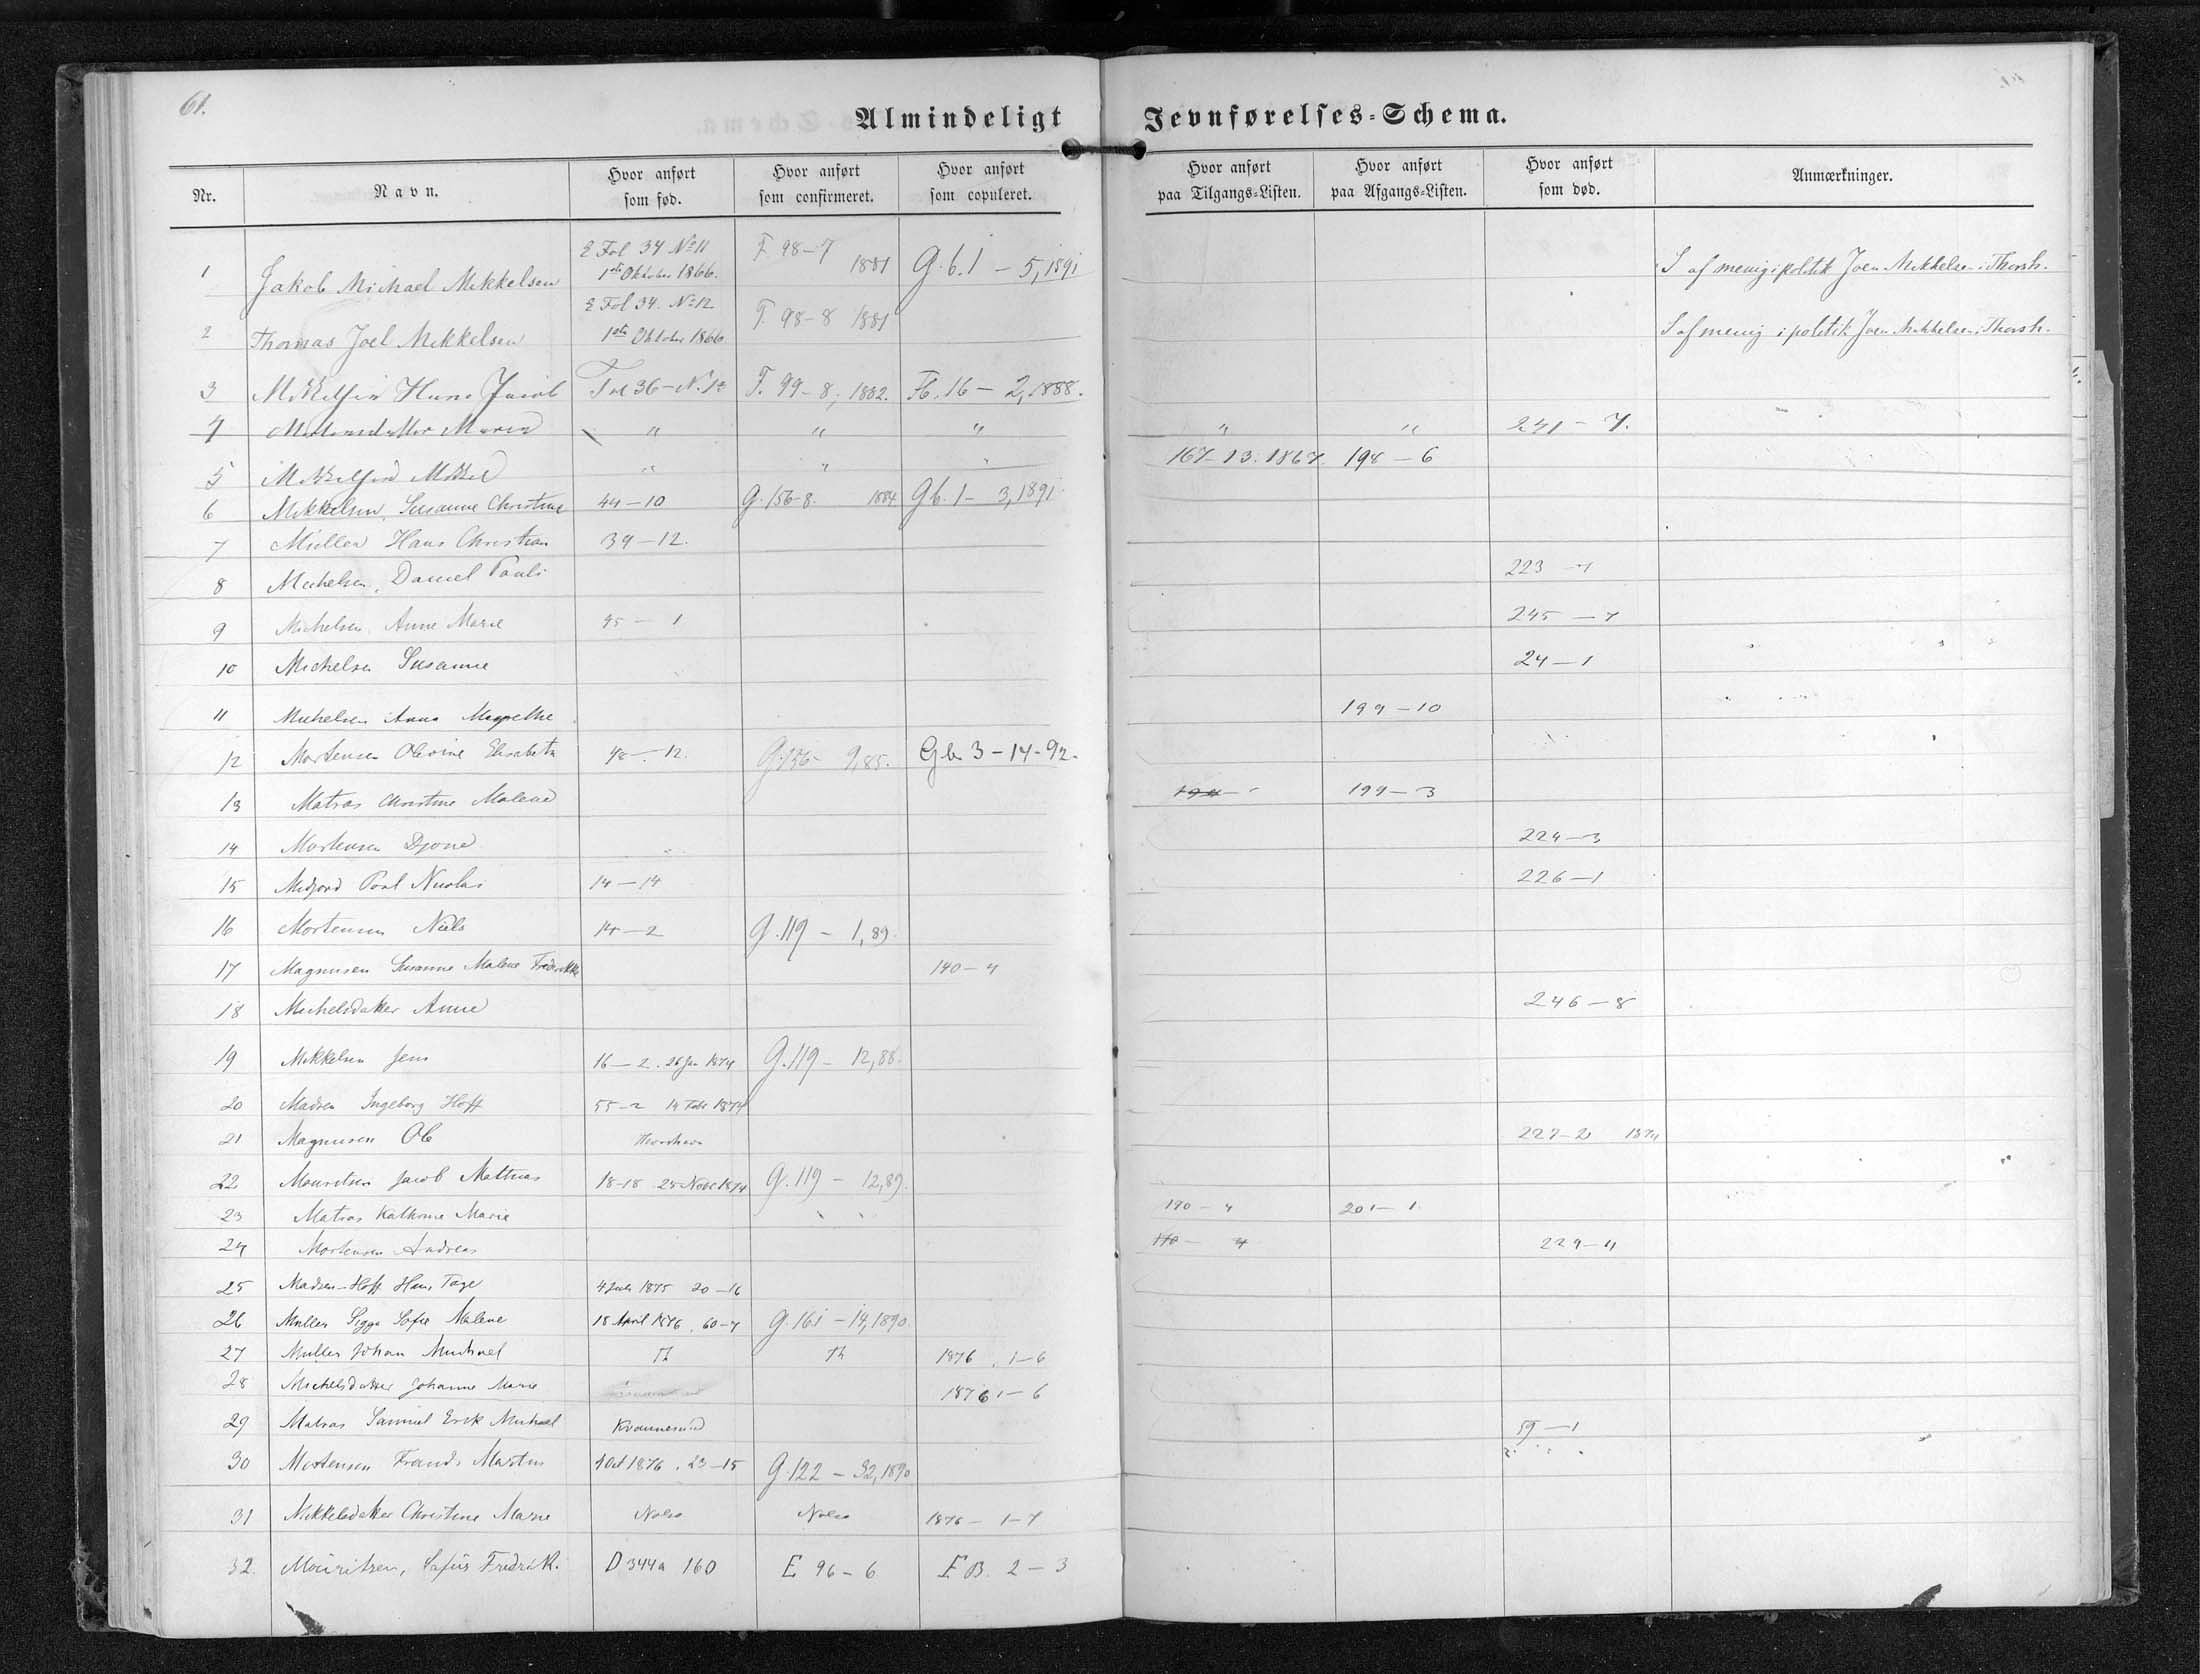 61.
Almindeligt Jevnførelses-Schema.
Nr. Navn. Hvor anført som fød. Hvor anført som confirmeret. Hvor anført som copuleret. Hvor anført paa Tilgangs-Listen. Hvor anført paa Afgangs-Listen. Hvor anført som død. Anmærkninger.
1 Jakob Michael Mikkelsen E Fol 34 No 11 1ste Oktober 1866. F. 98-7 1881 G.b.1 - 5,1891 S af menig i politik Joen Mikkelsen i Thorsh.
2 Thomas Joel Mikkelsen E Fol 34. No 12 1ste Oktober 1866 F. 98-8 1881 S af menig i politik Joen Mikkelsen i Thorsh.
3 Mikkelsen Hans Jacob Fol 36-N. 12 F. 99-8, 1882. Fb. 16 - 2, 1888.
4 Maria " " " " " 241-7.
5 Mikkelsen Mikkel " " " 167-13. 1867. 198-6
6 Mikkelsen, Susanne Christine 44-10 G. 156-8. 1884 Gb. 1 - 3, 1891.
7 Müller Hans Christian 39-12.
8 Michelsen, Daniel Pauli 223-7
9 Michelsen, Anne Marie 45-1 245-7
10 Michelsen Susanne 24-1
11 Michelsen Anna Magrethe 199-10
12 Mortensen Olevine Elisabeth 48-12. G. 156- 9,85. Gb 3-14-92.
13 Matras Christine Malene 199-3
14 Mortensen Djone 224-3
15 Midjord Poul Nicolai 14-14 226-1
16 Mortensen Niels 14-2 G. 119 - 1,89.
17 Magnusen Susanne Malene Frederikke 140-4
18 Michelsdatter Anne 246-8
19 Mikkelsen Jens 16-2. 26 Jan 1874 G. 119 - 12,88.
20 Madsen Ingeborg Hoff 55-2 14 Febr 1874
21 Magnusen Ole Thorshavn 227-2 1874
22 Mouritsen Jacob Mathias 18-18 28 Novbr 1874 G. 119 - 12,89.
23 Matras Kathrine Marie 190-4 201-1
24 Mortensen Andreas 190- 4 229-11
25 Madsen-Hoff Hans Tage 4 Juli 1875 20-16
26 Müller Sigga Sofie Malene 18 April 1876. 60-7 G. 161 - 14, 1890.
27 Müller Johan Michael Th Th 1876. 1-6
28 Michelsdatter Johanne Marie 1876 1-6
29 Matras Samuel Erik Michael Kvannesund 59-1
30 Mortensen Frands Martin 4 Oct 1876. 23-15 G. 122 - 32, 1890
31 Mikkelsdatter Christine Marie Nolsø Nolsø 1876 - 1-7
32. Mouritsen, Sofus Fredrik. D 344a 160 E 96-6 F B. 2-3